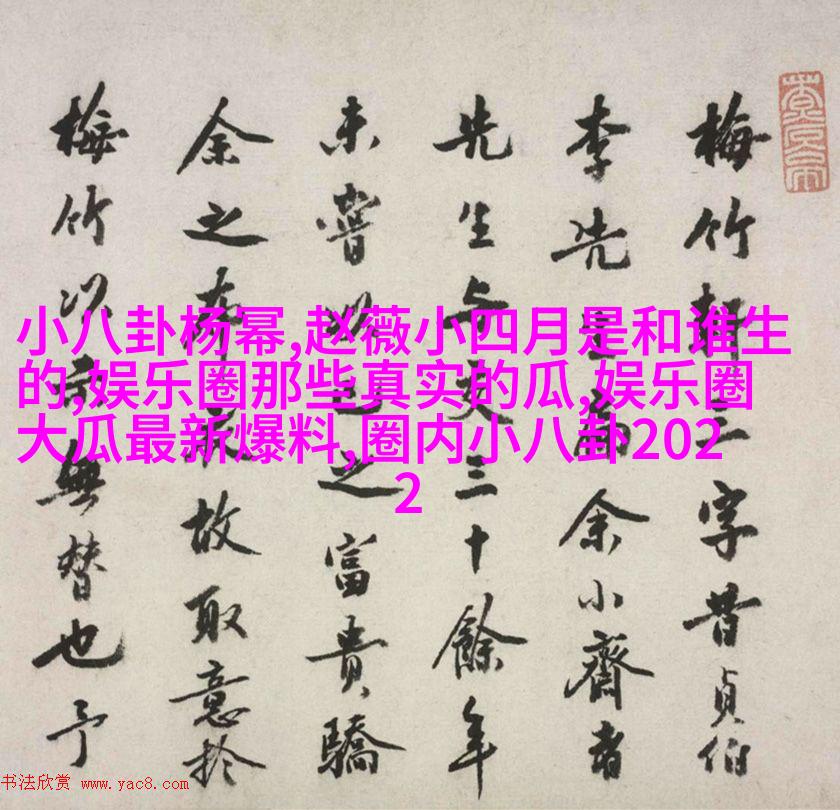 小八卦杨幂,赵薇小四月是和谁生
的,娱乐圈那些真实的瓜,娱乐圈
大瓜最新爆料,圈内小八卦202
2
梅竹三字昔貞伯
李先余小齋書
先生与交三十餘年
未嘗以之富貴驕
余之故取意於
梅竹以無替也予
书法欣赏 www.yac8.com